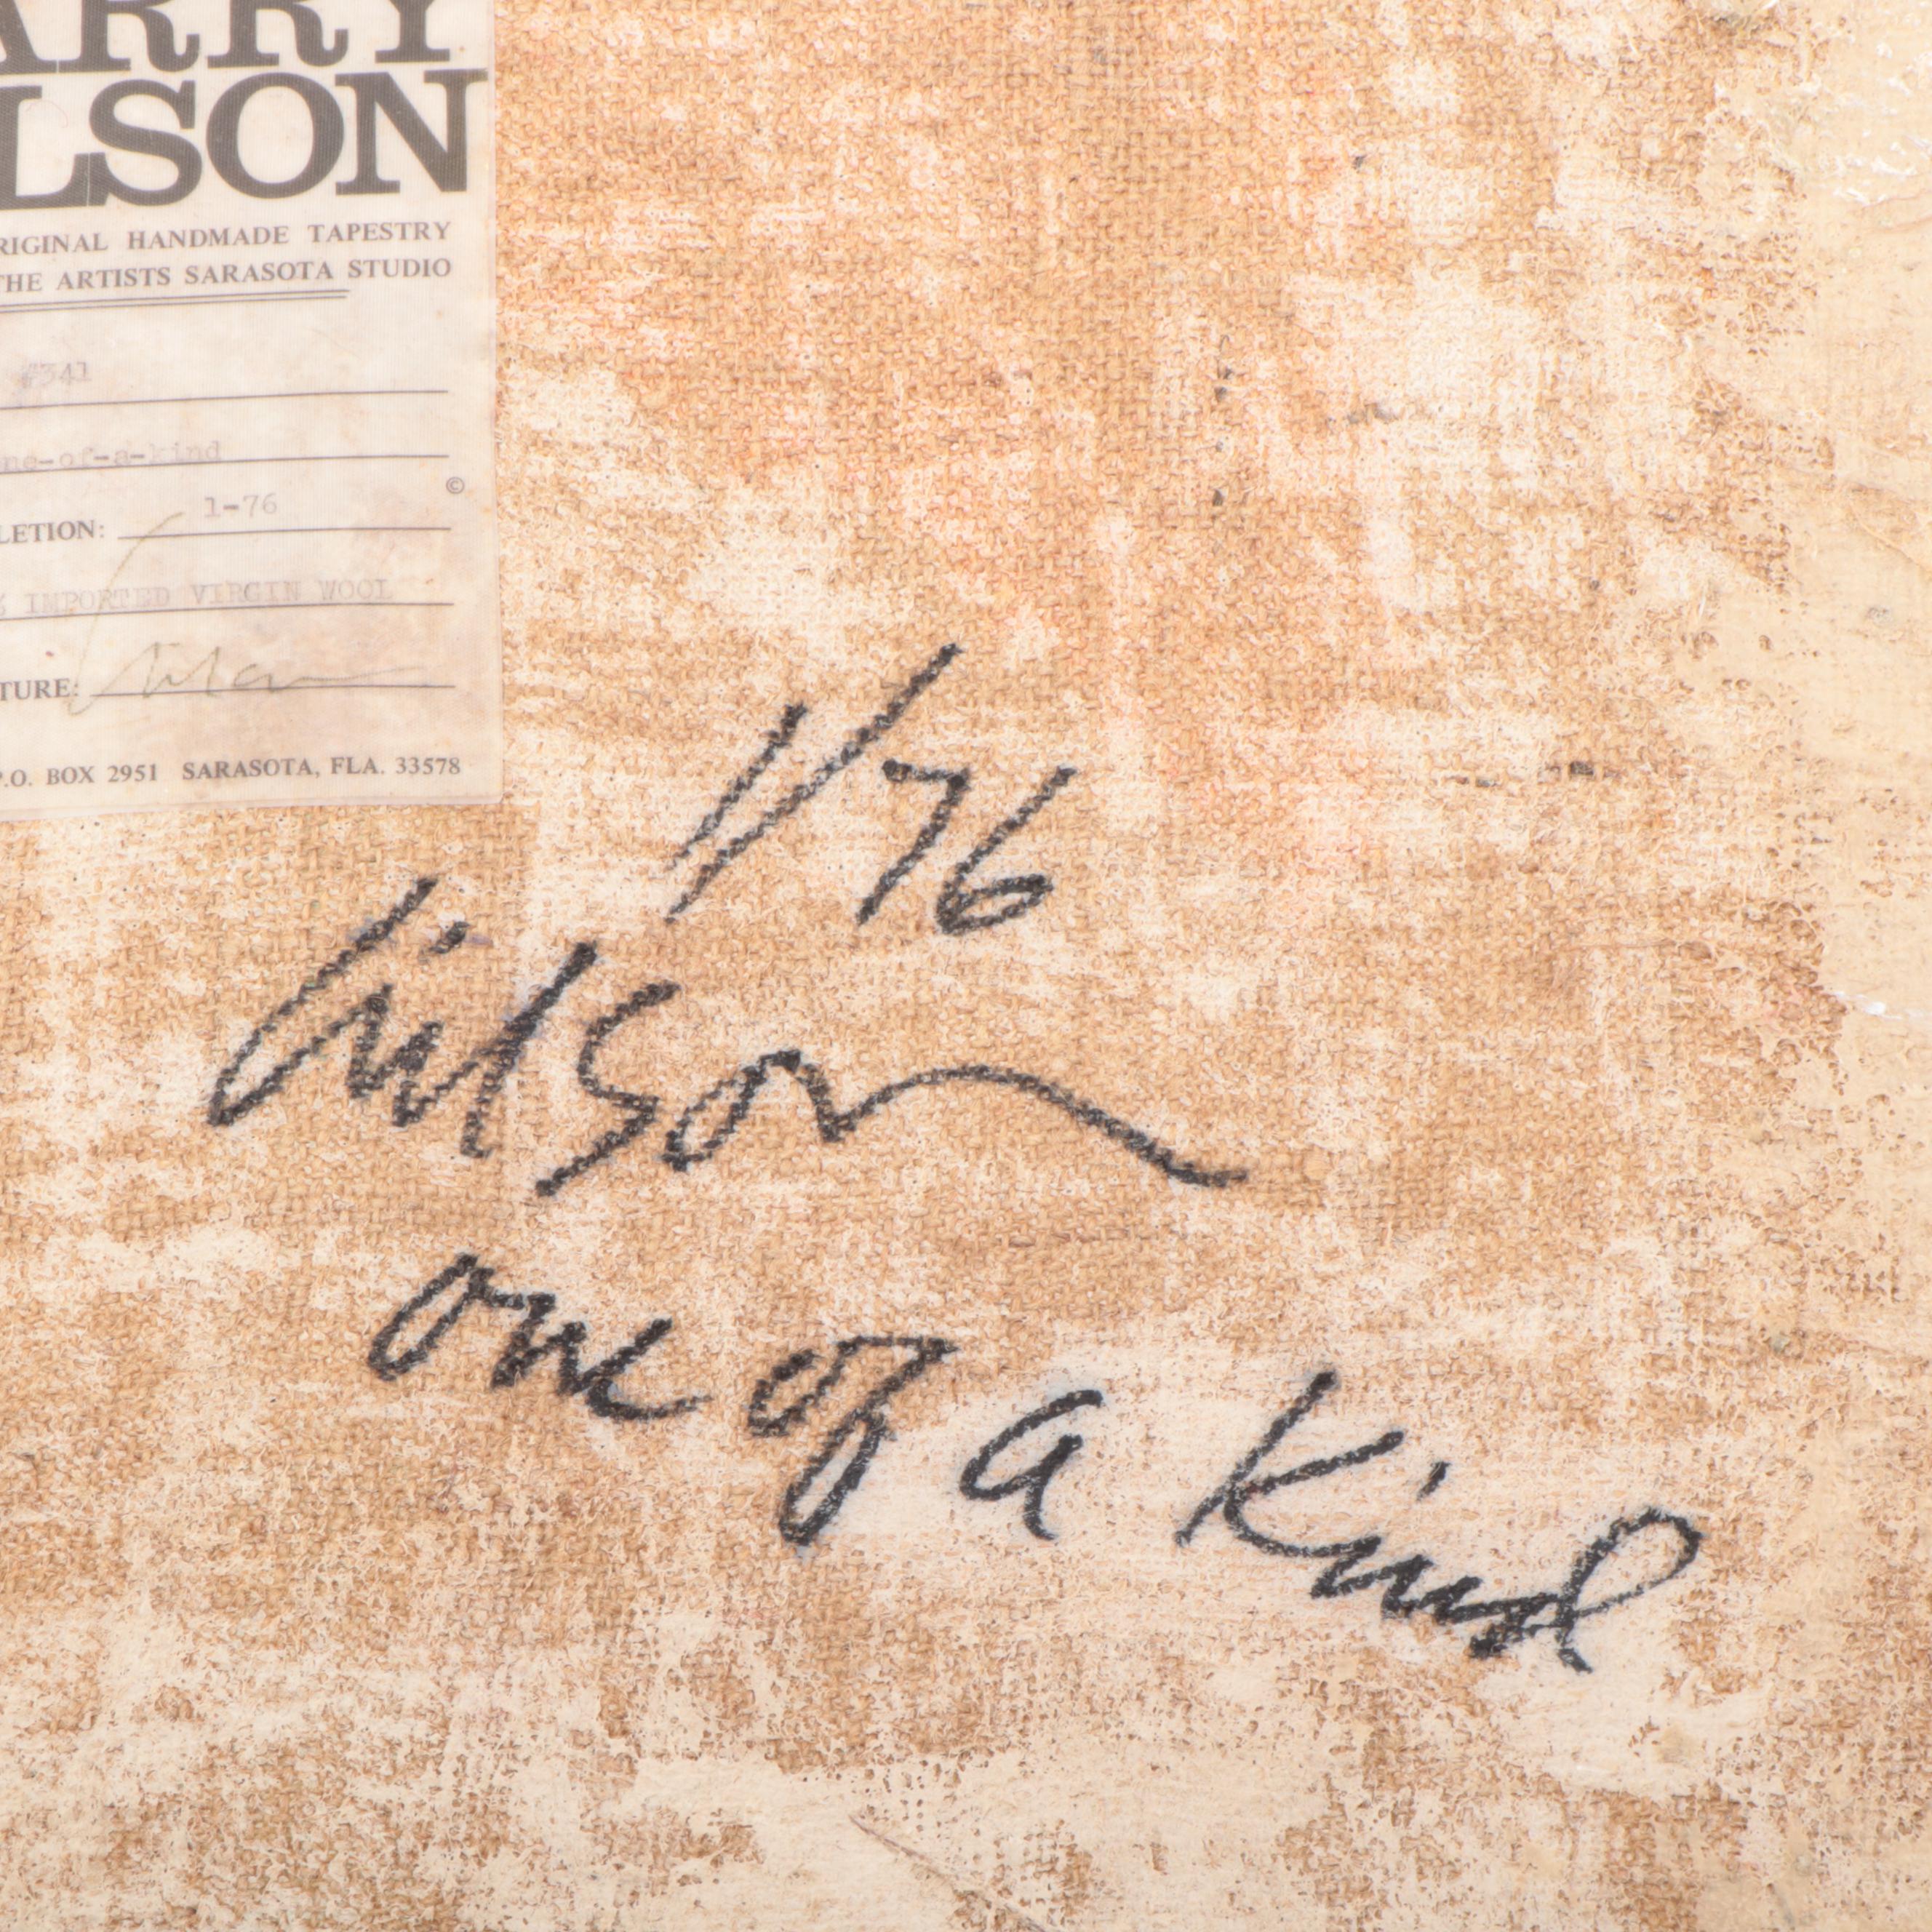 ARRY
LSON
RIGINAL HANDMADE TAPESTRY
THE ARTISTS SARASOTA STUDIO
#341
ne-of-a-kind
©
LETION: 1-76
% IMPORTED VIRGIN WOOL
TURE: Wilson
P.O. BOX 2951 SARASOTA, FLA. 33578
1/76
Wilson
one of a kind